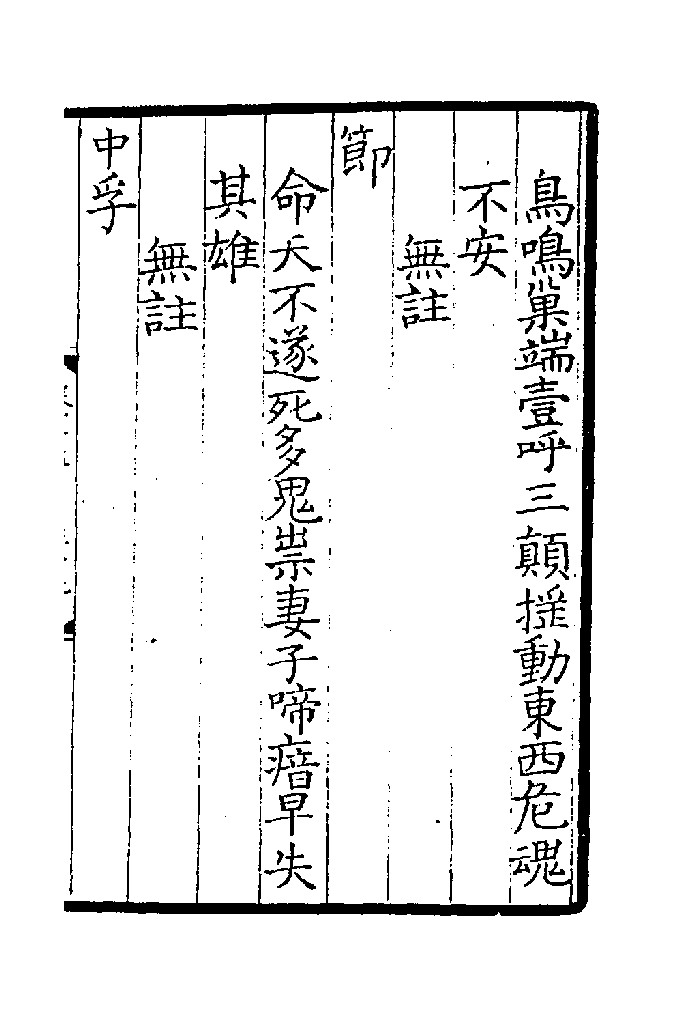 鳥鳴巢端壹呼三顛搖動東西危魂
不安
無註
節
命夭不遂死多鬼祟妻子啼瘖早失
其雄
無註
中孚